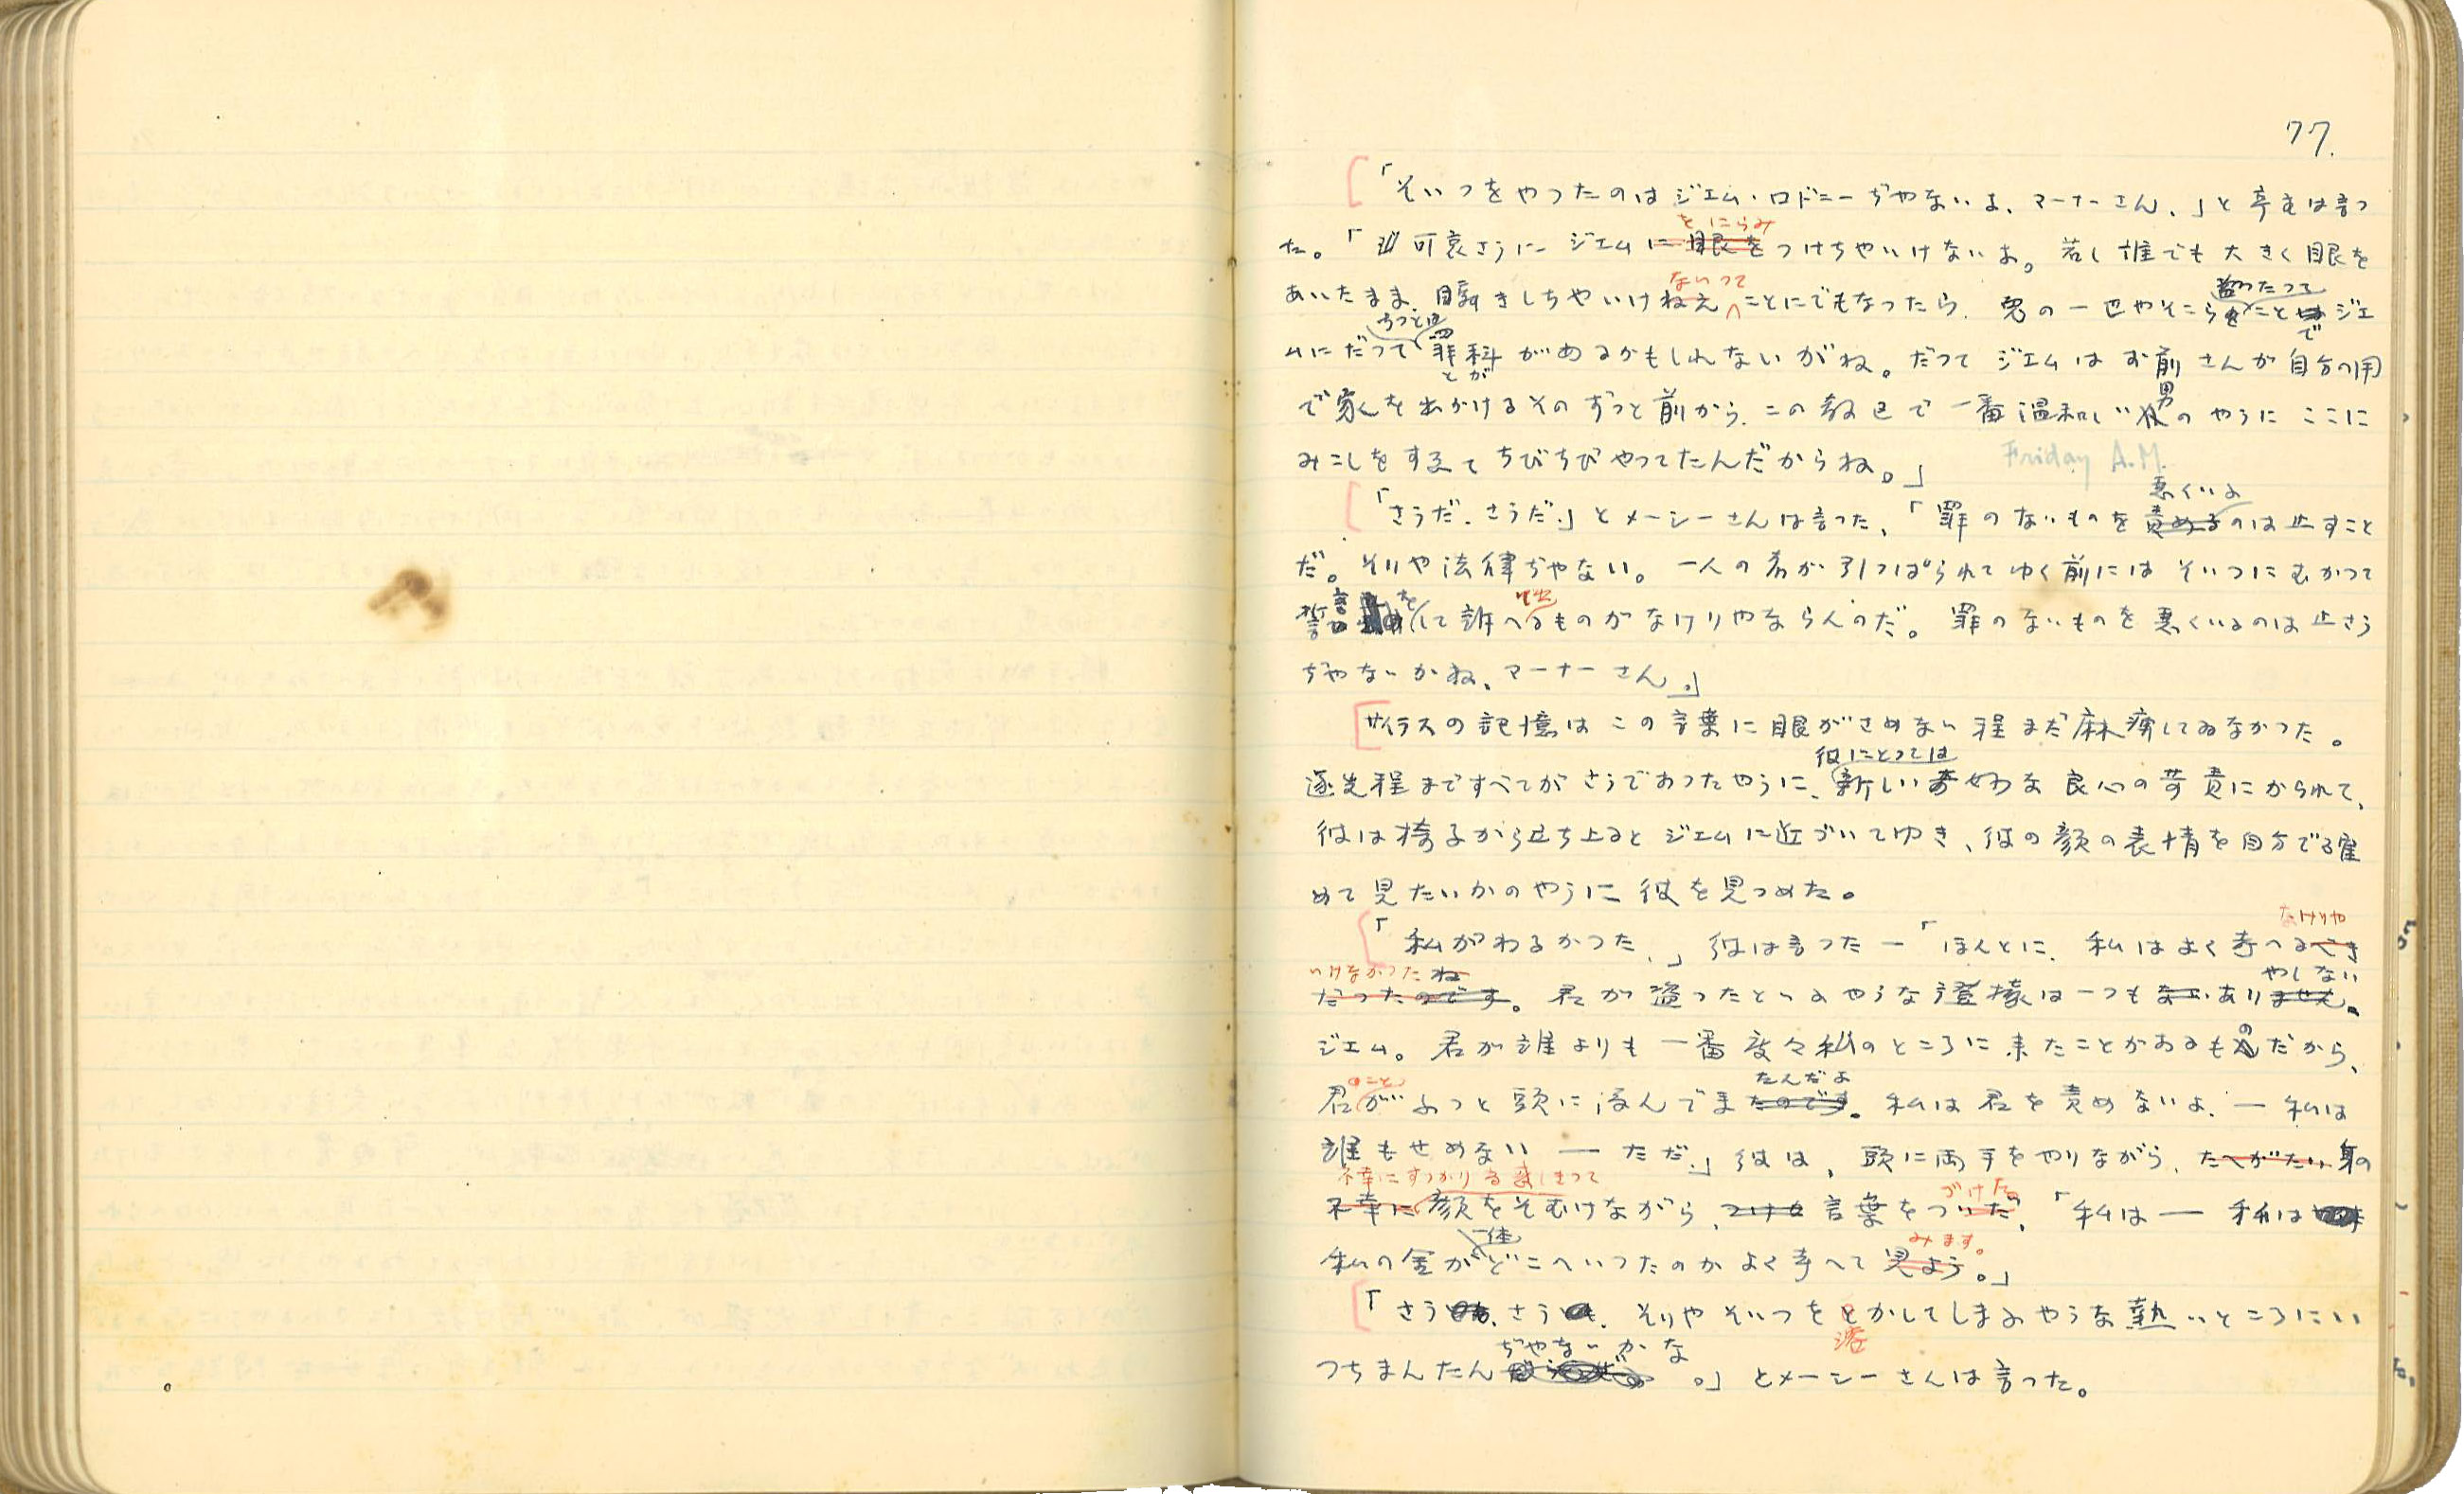 77.
「そいつをやつたのはジエム・ロドニーぢやないよ、マーナーさん、」と亭主は言つ
をにらみ
た。「可哀さうにジエムに眼をつけちやいけないよ。若し誰でも大きく眼を
ないつて 盗つたつて
あいたまま、瞬きしちやいけねえことにでもなつたら、兎の一匹やそこらをことはジエ
ちつとは で
ムにだつて罪科があるかもしれないがね。だつてジエムはお前さんが自分の用
とが 男
で家を出かけるそのずつと前から、この教区で一番温和しい奴のやうにここに
みこしをすゑてちびちびやつてたんだからね。」 Friday A.M.
悪くいふ
「さうだ、さうだ、」とメーシーさんは言つた、「罪のないものを責めるのは止すこと
だ。そりや法律ぢやない。一人の者が引つぱられてゆく前にはそいつにむかつて
言 を 出
誓して訴へるものがなけりやならんのだ。罪のないものを悪くいるのは止さう
ぢやないかね、マーナーさん。」
サイラスの記憶はこの言葉に眼がさめない程まだ麻痺してゐなかつた。
彼にとつては
遂先程まですべてがさうであつたやうに、新しい奇妙な良心の苛責にかられて、
彼は椅子から立ち上るとジエムに近づいてゆき、彼の顔の表情を自分で確
めて見たいかのやうに彼を見つめた。
なけりや
「私がわるかつた、」彼は言つた―「ほんとに、私はよく考へるべき
いけなかつたね やしない
だつたのです。君が盗つたといふやうな証拠は一つもないありません。
の
ジエム。君が誰よりも一番度々私のところに来たことがあるもんだから、
のこと たんだよ
君がふつと頭に浮んでまたのです。私は君を責めないよ、―私は
誰もせめない―ただ、」彼は、頭に両手をやりながら、たへがたい身の
不幸にすつかり
づけた
不幸に顔をそむけながら、つけた言葉をついだ、「私は―私は
一体 みます。
私の金がどこへいつたのかよく考へて見よう。」
「さう、さう、そりやそいつをとかしてしまふやうな熱いところにい
溶
ぢやないかな
つちまんたん。」とメーシーさんは言つた。